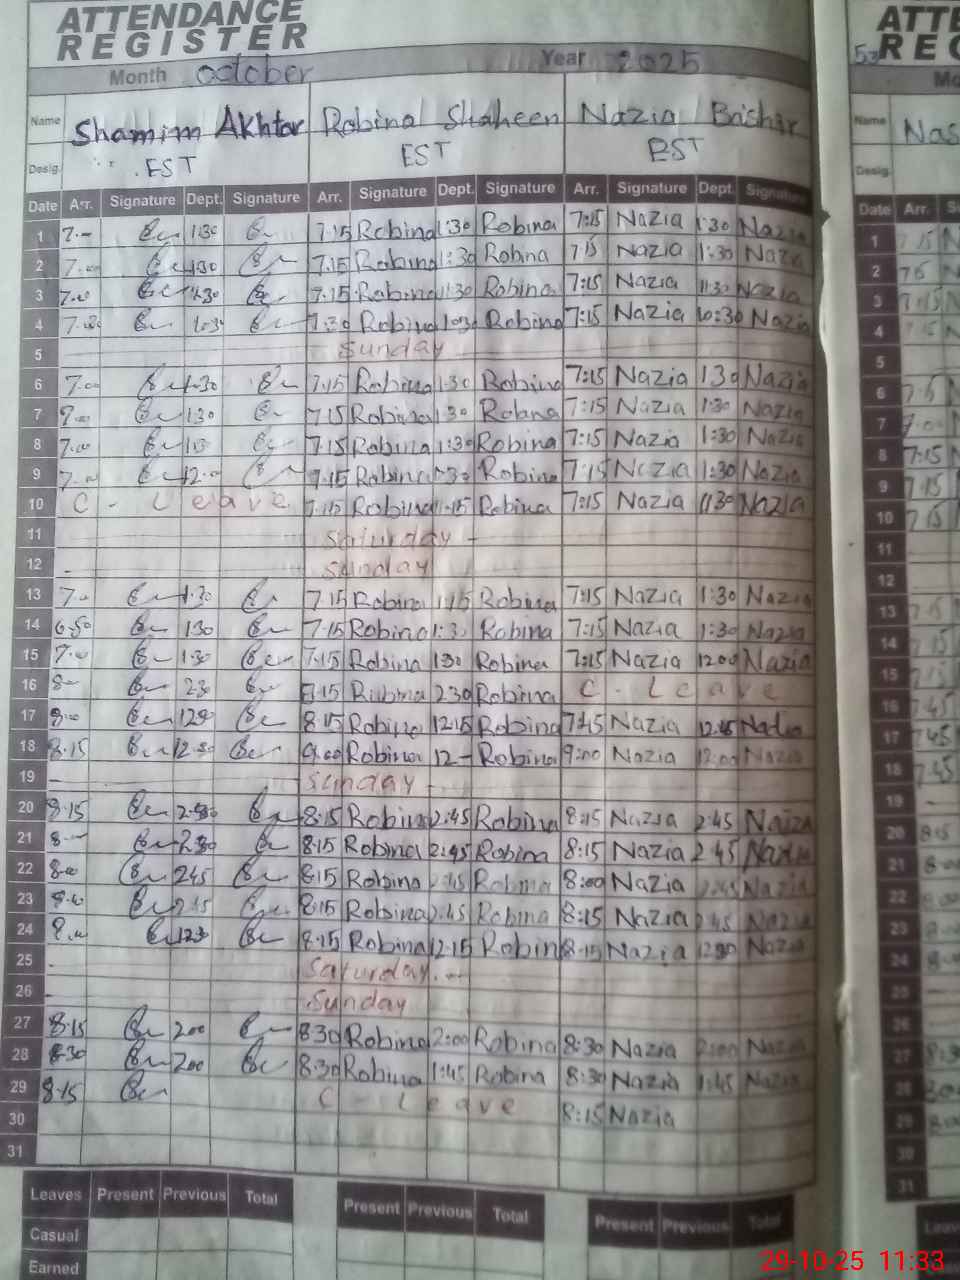 ATTENDANCE
REGISTER
Month October Year 2025
Name Shamim Akhtar Robina Shaheen Nazia Bashir
Desig. EST EST EST
Date Arr. Signature Dept. Signature Arr. Signature Dept. Signature Arr. Signature Dept. Signature
1 7.- 1:30 7.15 Robina 1:30 Robina 7:15 Nazia 1:30 Nazia
2 7.00 1:30 7.15 Robina 1:30 Robina 7:15 Nazia 1:30 Nazia
3 7.00 1:30 7.15 Robina 1:30 Robina 7:15 Nazia 11:30 Nazia
4 7:30 Robina Robina 7:15 Nazia 10:30 Nazia
5 Sunday
6 7.00 1.30 7.15 Robina 1.30 Robina 7:15 Nazia 1:30 Nazia
7 1:30 7.15 Robina 1:30 Robina 7:15 Nazia 1:30 Nazia
8 7.00 7.15 Robina 1:30 Robina 7:15 Nazia 1:30 Nazia
9 12.00 7.15 Robina Robina 7:15 Nazia 1:30 Nazia
10 C - Leave 7.15 Robina Robina 7:15 Nazia 11:30 Nazia
11 Saturday -
12 Sunday
13 7.- 1.30 7.15 Robina 1:15 Robina 7:15 Nazia 1:30 Nazia
14 6.50 1:30 7.15 Robina 1:30 Robina 7:15 Nazia 1:30 Nazia
15 7.00 1.30 7.15 Robina 1:30 Robina 7:15 Nazia 12:00 Nazia
16 8- 2:30 7.15 Rubina 2:30 Robina C - Leave
17 8.00 8.15 Robina 12:15 Robina 7:45 Nazia 12:15 Nadia
18 8.15 12.30 9.00 Robina 12- Robina 9:00 Nazia 12:00 Nazia
19 - Sunday -
20 8.15 8.15 Robina 2:45 Robina 8:15 Nazia 2:45 Nazia
21 8- 2:30 8.15 Robina 2:45 Robina 8:15 Nazia 2:45 Nazia
22 8.00 2:45 8.15 Robina 2:45 Robina 8:00 Nazia 2:45 Nazia
23 2.45 8.15 Robina 2:45 Robina 8:15 Nazia 2:45 Nazia
24 8.00 8.15 Robina 12.15 Robin 8.15 Nazia Nazia
25 - Saturday. -
26 - Sunday
27 8.15 2:00 8:30 Robina 2:00 Robina 8:30 Nazia 2:00 Nazia
28 8.30 2:00 8:30 Robina 1:45 Robina 8:30 Nazia 1:45 Nazia
29 8.15 C - Leave 8:15 Nazia
30
31
Leaves Present Previous Total Present Previous Total Present Previous Total
Casual
Earned
Name Nas
Desig.
Date Arr.
29-10-25 11:33